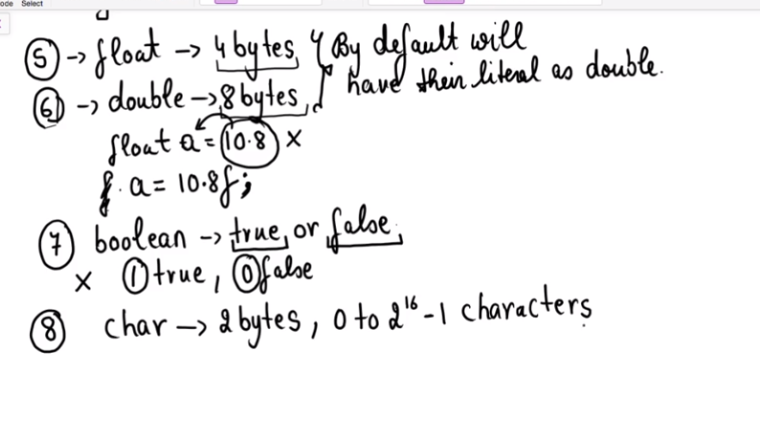 ode Select
⑤ → float → 4 bytes } By default will
⑥ → double → 8 bytes } have their literal as double.
float a = 10.8 ×
f. a = 10.8f;
⑦ boolean → true, or false.
× ① true, ⓪ false
⑧ char → 2 bytes, 0 to 2^16 - 1 characters